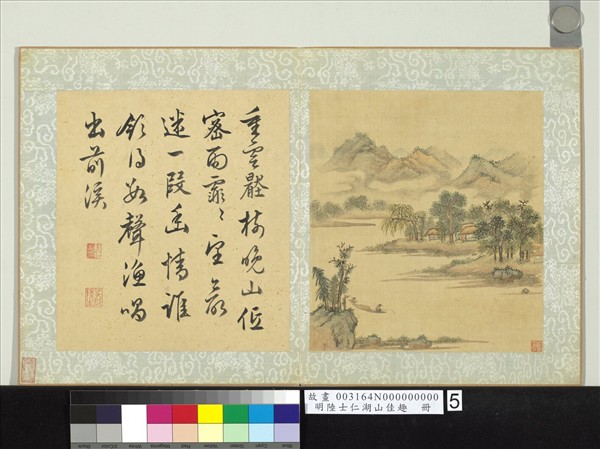 重雲壓樹晚山低
密雨霏〻望
迷一段幽情誰
領得數聲漁唱
出前溪
故畫 003164N000000000
明陸士仁湖山佳趣 冊
5